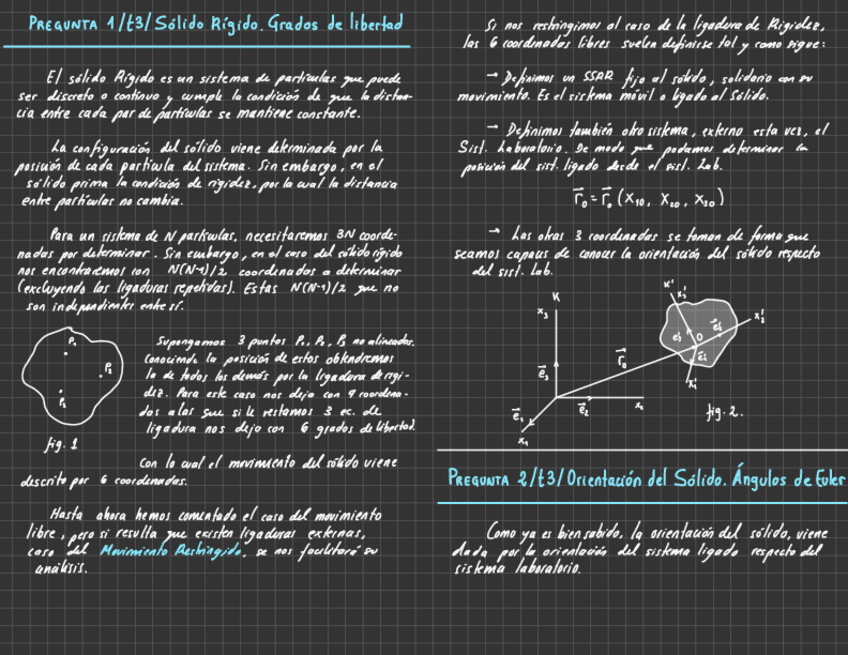 PREGUNTA 1/t3/Sólido Rígido. Grados de libertad
El sólido Rígido es un sistema de partículas que puede
ser discreto o continuo y cumple la condición de que la distan-
cia entre cada par de partículas se mantiene constante.
La configuración del sólido viene determinada por la
posición de cada partícula del sistema. Sin embargo, en el
sólido prima la condición de rigidez, por la cual la distancia
entre partículas no cambia.
Para un sistema de N partículas, necesitaremos 3N coorde-
nadas por determinar. Sin embargo, en el caso del sólido rígido
nos encontraremos con N(N-1)/2 coordenadas a determinar
(excluyendo las ligaduras repetidas). Estas N(N-1)/2 que no
son independientes entre sí.
P₁
P₂
P₃
fig. 1
Supongamos 3 puntos P₁, P₂, P₃ no alineados.
Conociendo la posición de estos obtendremos
la de todos los demás por la ligadura de rigi-
dez. Para este caso nos deja con 9 coordena-
das a las que si le restamos 3 ec. de
ligadura nos deja con 6 grados de libertad.
Con lo cual el movimiento del sólido viene
descrito por 6 coordenadas.
Hasta ahora hemos comentado el caso del movimiento
libre, pero si resulta que existen ligaduras externas,
caso del Movimiento Restringido, se nos facilitará su
análisis.
Si nos restringimos al caso de la ligadura de Rigidez,
las 6 coordenadas libres suelen definirse tal y como sigue:
→ Definimos un SSAR fijo al sólido, solidario con su
movimiento. Es el sistema móvil o ligado al Sólido.
→ Definimos también otro sistema, externo esta vez, el
Sist. Laboratorio. De modo que podamos determinar la
posición del sist. ligado desde el sist. Lab.
r⃗₀ = r⃗₀ (X₁₀, X₂₀, X₃₀)
→ Las otras 3 coordenadas se toman de forma que
seamos capaces de conocer la orientación del sólido respecto
del sist. Lab.
K
x₃
e⃗₃
e⃗₁
x₁
e⃗₂
x₂
r⃗₀
K'
x₃'
x₂'
x₁'
O
fig. 2.
PREGUNTA 2/t3/Orientación del Sólido. Ángulos de Euler
Como ya es bien sabido, la orientación del sólido, viene
dada por la orientación del sistema ligado respecto del
sistema laboratorio.